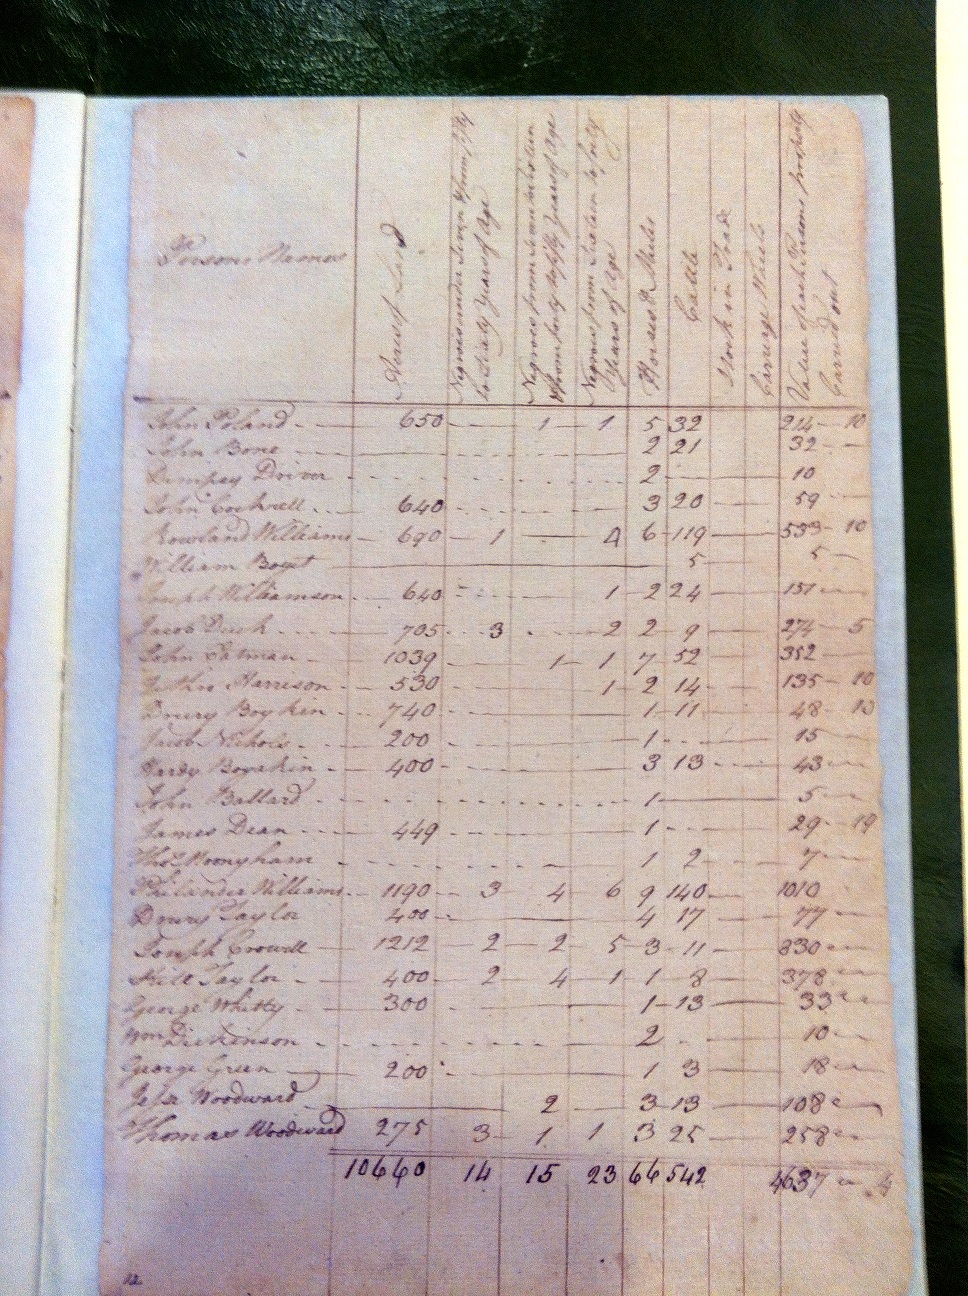 Persons Names
Acres of Land
Negroes under Seven & from fifty to Sixty Years of Age
Negroes from Seven to Sixteen & from forty to fifty Years of Age
Negroes from Sixteen to forty Years of Age
Horses & Mules
Cattle
Stock in Trade
Carriage Wheels
Value of each Persons property Carried out
John Poland 650 1 1 5 32 214 10
John Bone 2 21 32
Dempsey Driver 2 10
John Cockrell 640 3 20 59
Rowland Williams 690 1 4 6 119 533 10
William Boyet 5 5
Joseph Williamson 640 1 2 24 137
Jacob Dush 705 3 2 2 9 274 5
John Eatman 1039 1 1 7 52 352
Harrison 530 1 2 14 135 10
Drury Boyken 740 1 11 48 10
Jacob Nichols 200 1 15
Hardy Boyakin 400 3 13 43
John Ballard 1 5
James Dean 449 1 29 19
Thos 1 2 7
Philander Williams 1190 3 4 6 9 140 1010
Drury Taylor 400 4 17 77
Joseph Crowell 1212 2 2 5 3 11 830
Hill Taylor 400 2 4 1 1 8 378
George Whitty 300 1 13 33
Wm Dickinson 2 10
George Green 200 1 3 18
Jesse Woodward 2 3 13 108
Thomas Woodward 275 3 1 1 3 25 258
10660 14 15 23 66 542 4637 4
12